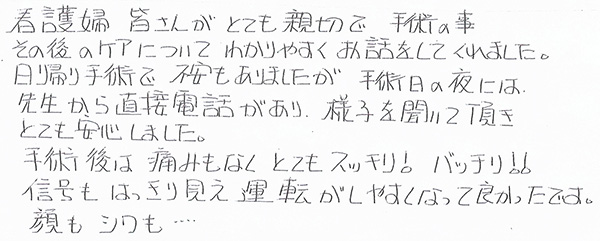 看護婦 皆さんが とても 親切で 手術の事
その後 のケアについて わかりやすく お話をしてくれました。
日り帰り手術で 不安もありましたが 手術日の夜には、
先生から直接電話があり、様子を聞いて頂き
とても安心しました。
手術後は 痛みもなく とても スッキリ! バッチリ!!
信号も はっきり見え 運転がしやすくなって良かったです。
顔も シワも…